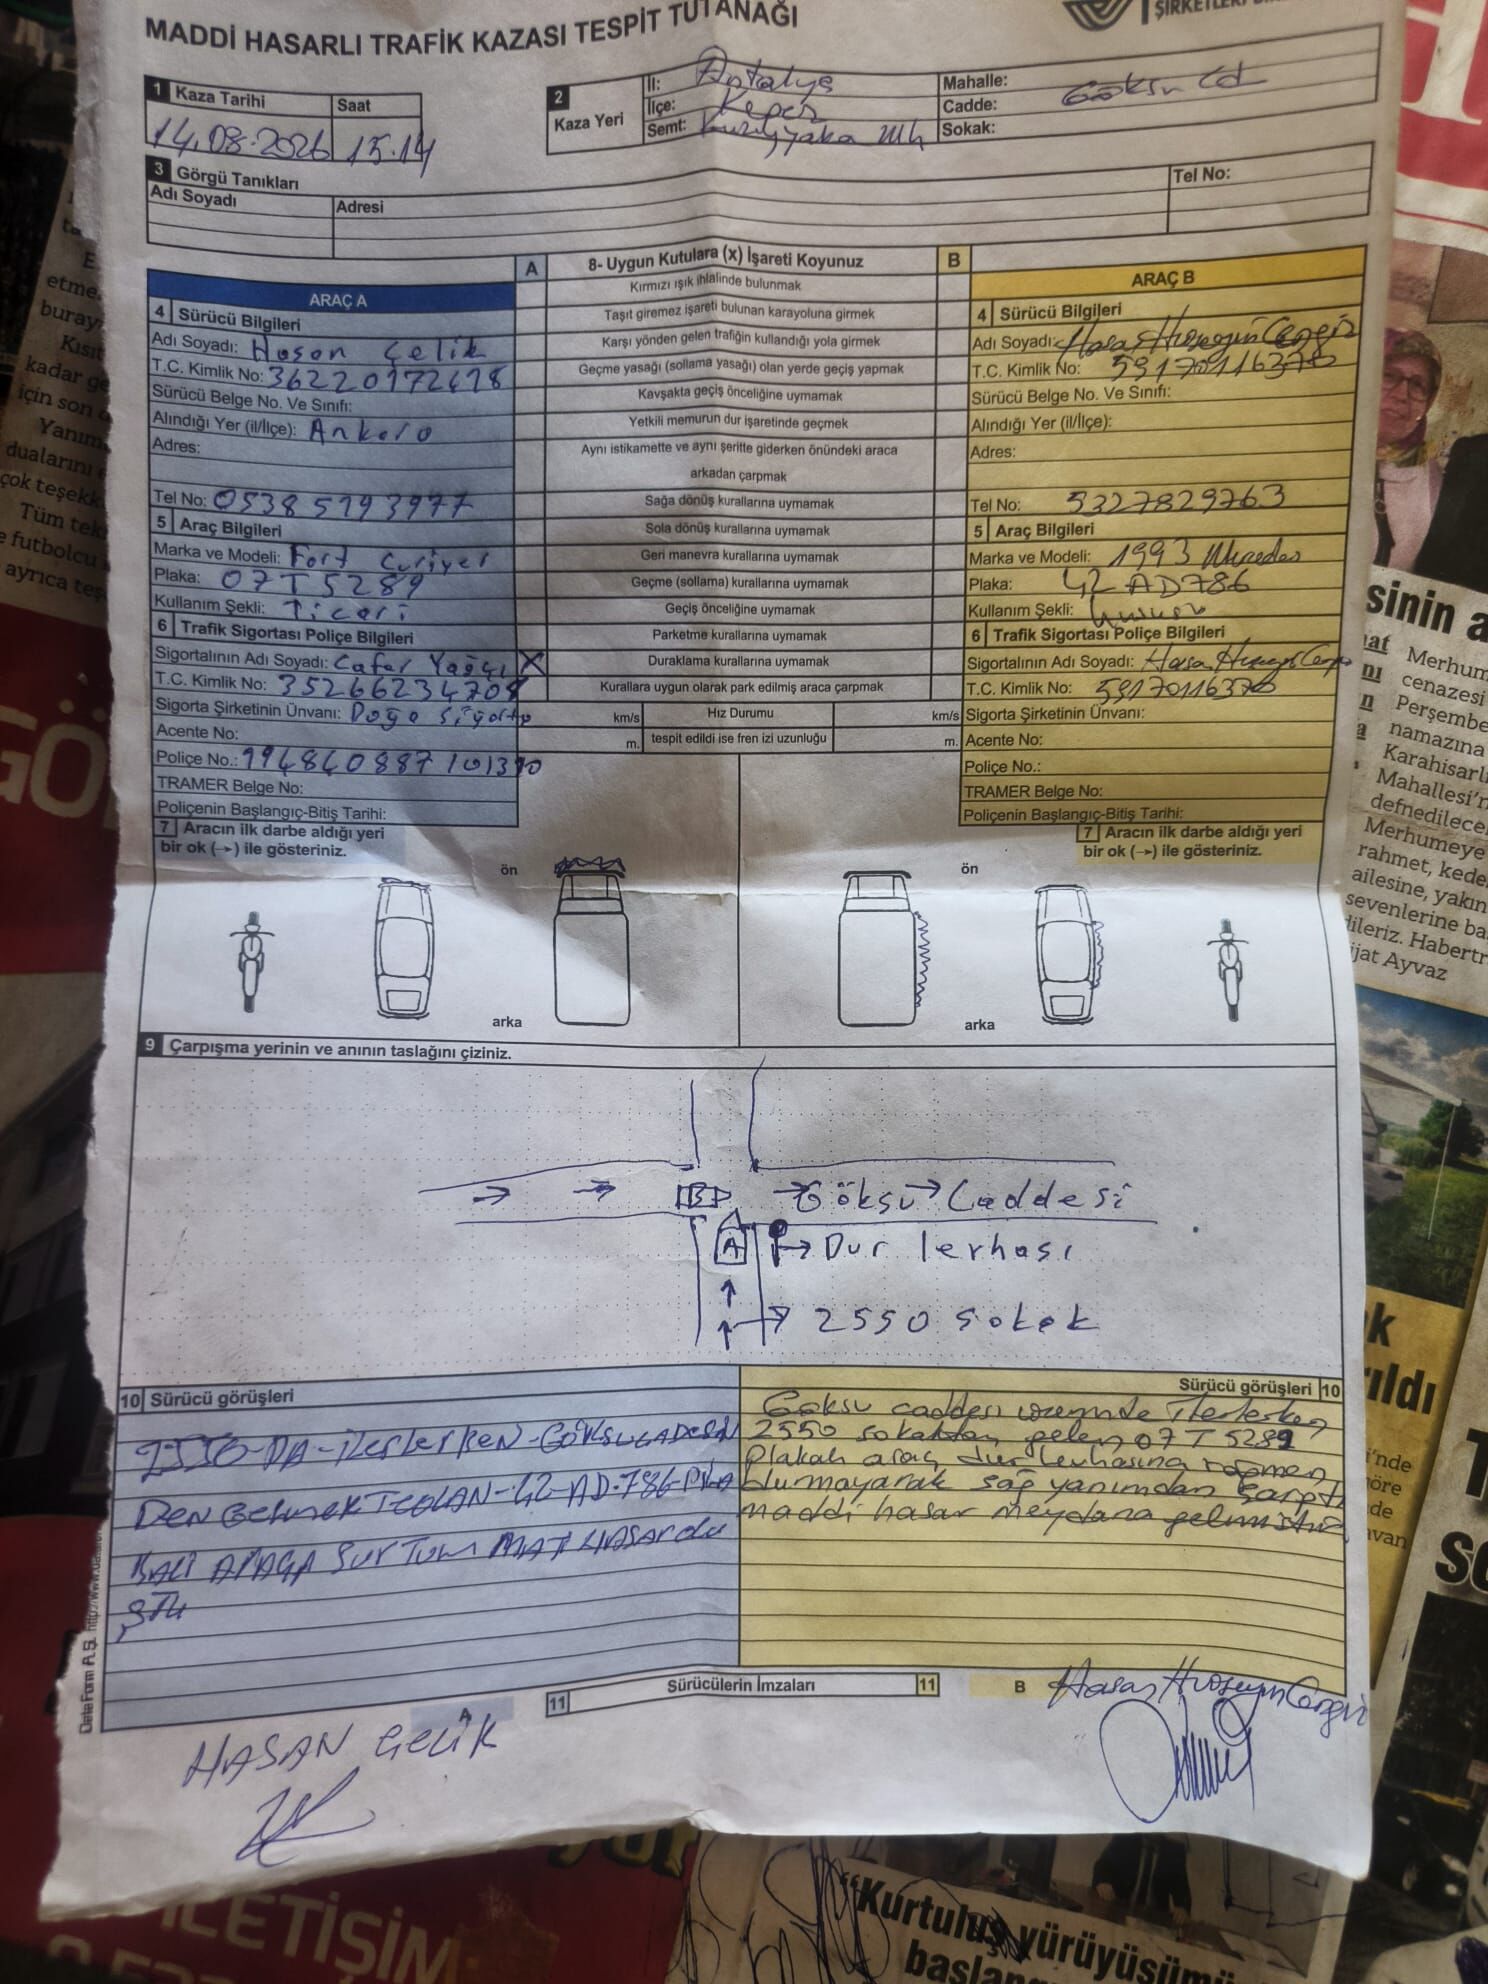 MADDİ HASARLI TRAFİK KAZASI TESPİT TUTANAĞI
ŞİRKETLERİ
1 Kaza Tarihi Saat
14.08.2026 15.14
2 Kaza Yeri
İl: Antalya
İlçe: Kepez
Semt: Kuzeyyaka Mh
Mahalle:
Cadde: Göksu Cd
Sokak:
3 Görgü Tanıkları
Adı Soyadı Adresi Tel No:
A 8- Uygun Kutulara (x) İşareti Koyunuz B
ARAÇ A
4 Sürücü Bilgileri
Adı Soyadı: Hasan Çelik
T.C. Kimlik No: 36220172478
Sürücü Belge No. Ve Sınıfı:
Alındığı Yer (il/ilçe): Ankara
Adres:
Tel No: 05385793977
5 Araç Bilgileri
Marka ve Modeli: Fort Curiyer
Plaka: 07 T 5289
Kullanım Şekli: Ticari
6 Trafik Sigortası Poliçe Bilgileri
Sigortalının Adı Soyadı: Cafer Yağcı
T.C. Kimlik No: 35266234708
Sigorta Şirketinin Ünvanı: Doğa Sigorta
Acente No:
Poliçe No.:
TRAMER Belge No:
Poliçenin Başlangıç-Bitiş Tarihi:
7 Aracın ilk darbe aldığı yeri
bir ok (→) ile gösteriniz.
Kırmızı ışık ihlalinde bulunmak
Taşıt giremez işareti bulunan karayoluna girmek
Karşı yönden gelen trafiğin kullandığı yola girmek
Geçme yasağı (sollama yasağı) olan yerde geçiş yapmak
Kavşakta geçiş önceliğine uymamak
Yetkili memurun dur işaretinde geçmek
Aynı istikamette ve aynı şeritte giderken önündeki araca
arkadan çarpmak
Sağa dönüş kurallarına uymamak
Sola dönüş kurallarına uymamak
Geri manevra kurallarına uymamak
Geçme (sollama) kurallarına uymamak
Geçiş önceliğine uymamak
Parketme kurallarına uymamak
X Duraklama kurallarına uymamak
Kurallara uygun olarak park edilmiş araca çarpmak
km/s Hız Durumu km/s
m. tespit edildi ise fren izi uzunluğu m.
ARAÇ B
4 Sürücü Bilgileri
Adı Soyadı: Hasan Hüseyin Cengiz
T.C. Kimlik No: 59170116370
Sürücü Belge No. Ve Sınıfı:
Alındığı Yer (il/ilçe):
Adres:
Tel No: 5327829763
5 Araç Bilgileri
Marka ve Modeli: 1993 Mercedes
Plaka: 42 AD 786
Kullanım Şekli: Hususi
6 Trafik Sigortası Poliçe Bilgileri
Sigortalının Adı Soyadı: Hasan Hüseyin Cengiz
T.C. Kimlik No: 59170116370
Sigorta Şirketinin Ünvanı:
Acente No:
Poliçe No.:
TRAMER Belge No:
Poliçenin Başlangıç-Bitiş Tarihi:
7 Aracın ilk darbe aldığı yeri
bir ok (→) ile gösteriniz.
ön ön
arka arka
9 Çarpışma yerinin ve anının taslağını çiziniz.
B → Göksu → Caddesi
A → Dur lerhası
→ 2550 Sokak
10 Sürücü görüşleri
2550-DA-İLERLERKEN-GÖKSUCADESİN
DEN GELMEKTEOLAN-42-AD-786-PLA
KALI ARACA SURTUM MATİ HASAR olu
ŞTU
Sürücü görüşleri 10
Göksu caddesi üzerinde ilerlerken
2550 sokaktan gelen 07 T 5289
Plakalı araç dur levhasına rağmen
durmayarak sağ yanımdan çarptı
maddi hasar meydana gelmiştir
11 Sürücülerin İmzaları 11
A
HASAN ÇELİK
B
Hasan Hüseyin Cengiz
Data Form A.Ş.
etme.
kadar
için son
dualarını
çok teşekk
Tüm
futbolcu
ayrıca
GÖ
sinin
Merhum
cenazesi
Perşembe
namazına
Karahisarlı
Mahallesi'n
defnedilece
Merhumeye
rahmet, kede
ailesine, yakın
sevenlerine ba
dileriz. Habertr
ijat Ayvaz
ıldı
İLETİŞİM
"Kurtuluş yürüyüşümü